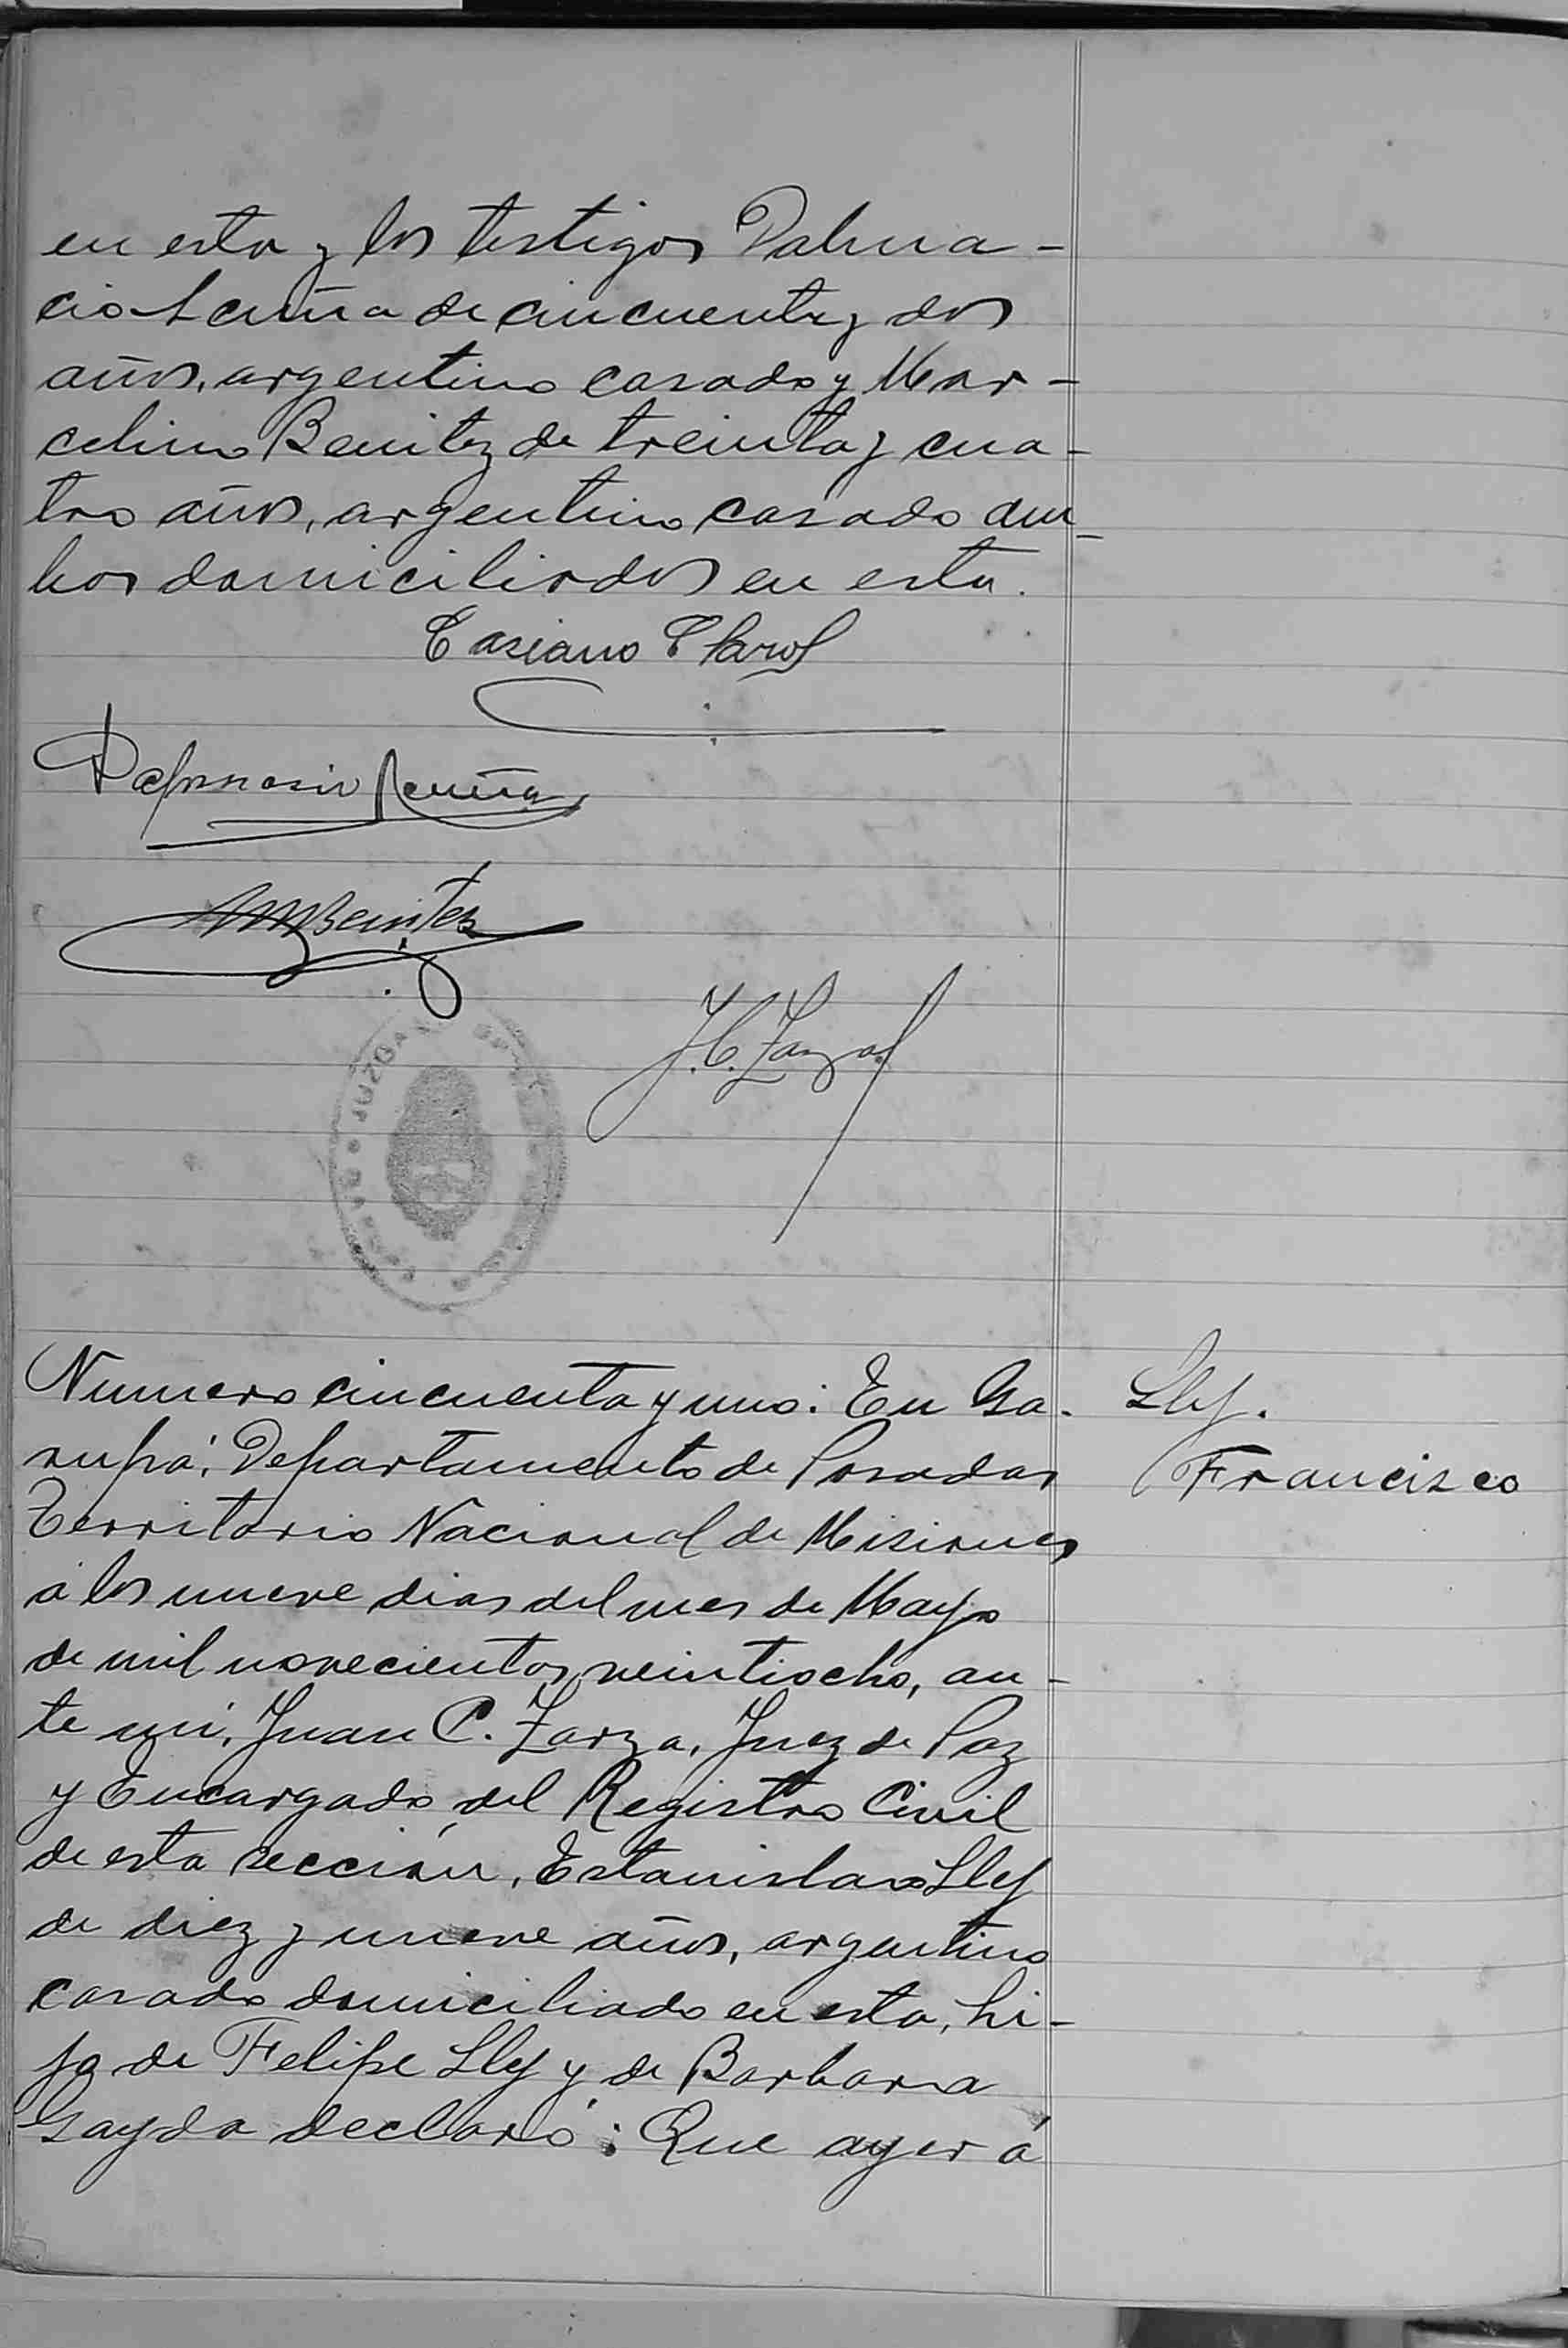 en esta y los testigos Dalma-
cio Acuña de cincuenta y dos
años, argentino casado y Mar-
celino Benitez de treinta y cua-
tro años, argentino casado am-
bos domiciliados en esta.
Casiano
Dalmasio Acuña
MBenitez
J. C. Zarza
JUZGA
Numero cincuenta y uno: En Ga-
rupá, Departamento de Posadas
Territorio Nacional de Misiones
á los nueve dias del mes de Mayo
de mil novecientos veintiocho, an-
te mi, Juan C. Zarza, Juez de Paz
y Encargado del Registro Civil
de esta sección, Estanislao Lly
de diez y nueve años, argentino
casado domiciliado en esta, hi-
jo de Felipe Lly y de Barbara
Gayda declaró: Que ayer á
Lly.
Francisco